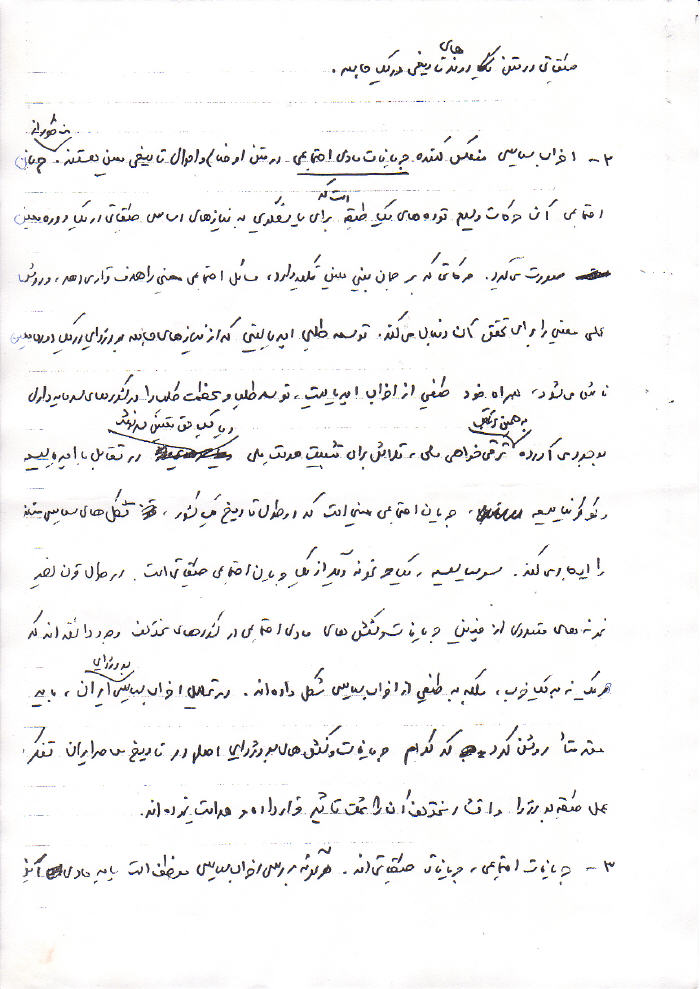 طبقاتی در متن روندهای تاریخی در یک جامعه.
۲- احزاب سیاسی منعکس کننده جریانات مادی اجتماعی در متن اوضاع و احوال تاریخی معین هستند. جریان
اجتماعی آن حرکات وسیع توده های یک طبقه است که برای پاسخگویی به نیازهای اساسی طبقاتی در یک دوره معین
صورت می گیرد. حرکاتی که بر جهان بینی معینی تکیه دارد، مسائل اجتماعی معینی را هدف قرار می دهد، و روش
عملی معینی را برای تحقق آن دنبال می کند. توسعه طلبی امپریالیستی که از نیازهای جامعه بورژوایی در یک دوره معین
ناشی می شود، همراه خود طیفی از احزاب امپریالیست، توسعه طلب و عظمت طلب را در کشورهای سرمایه داری
بوجود می آورد. به همین ترتیب ترقی خواهی ملی، تلاش برای تثبیت هویت ملی در تقابل با امپریالیسم
جریان اجتماعی معینی است که در طول تاریخ یک کشور، تشکل های سیاسی متعدد
را ایجاد می کند. سوسیالیسم، یک نمونه دیگر از یک جریان اجتماعی طبقاتی است. در طول قرن اخیر
نمونه های متعددی از چنین جریانات و کشش های مادی اجتماعی در کشورهای مختلف وجود داشته اند که
هر یک نه به یک حزب، بلکه به طیفی از احزاب سیاسی شکل داده اند. در تحلیل احزاب سیاسی بورژوایی ایران، باید
مقدمتاً روشن کرد که کدام جریانات و کشش های بورژوایی اصلی در تاریخ معاصر ایران تفکر و
عمل طبقه بورژوا و اقشار مختلف آن را تحت تاثیر قرار داده و هدایت نموده اند.
۳- جریانات اجتماعی، جریانات طبقاتی اند. هرگونه بررسی احزاب سیاسی موظف است پایه مادی